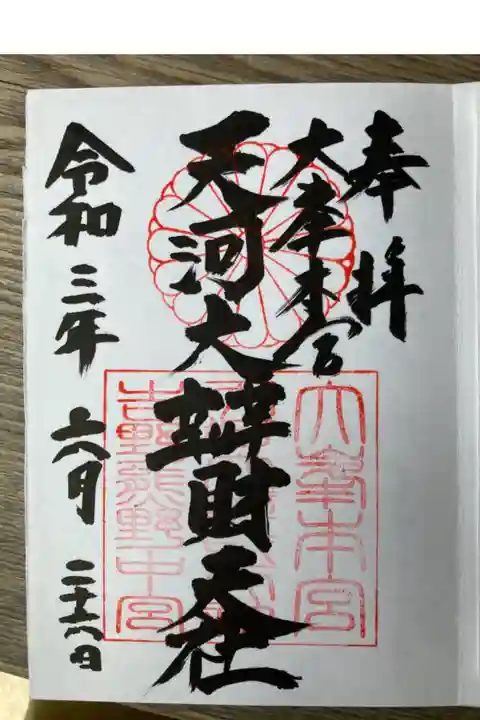 奉拝
大峯本宮
天河大辨財天社
令和三年六月二十六日
大峯本宮
吉野熊野中宮